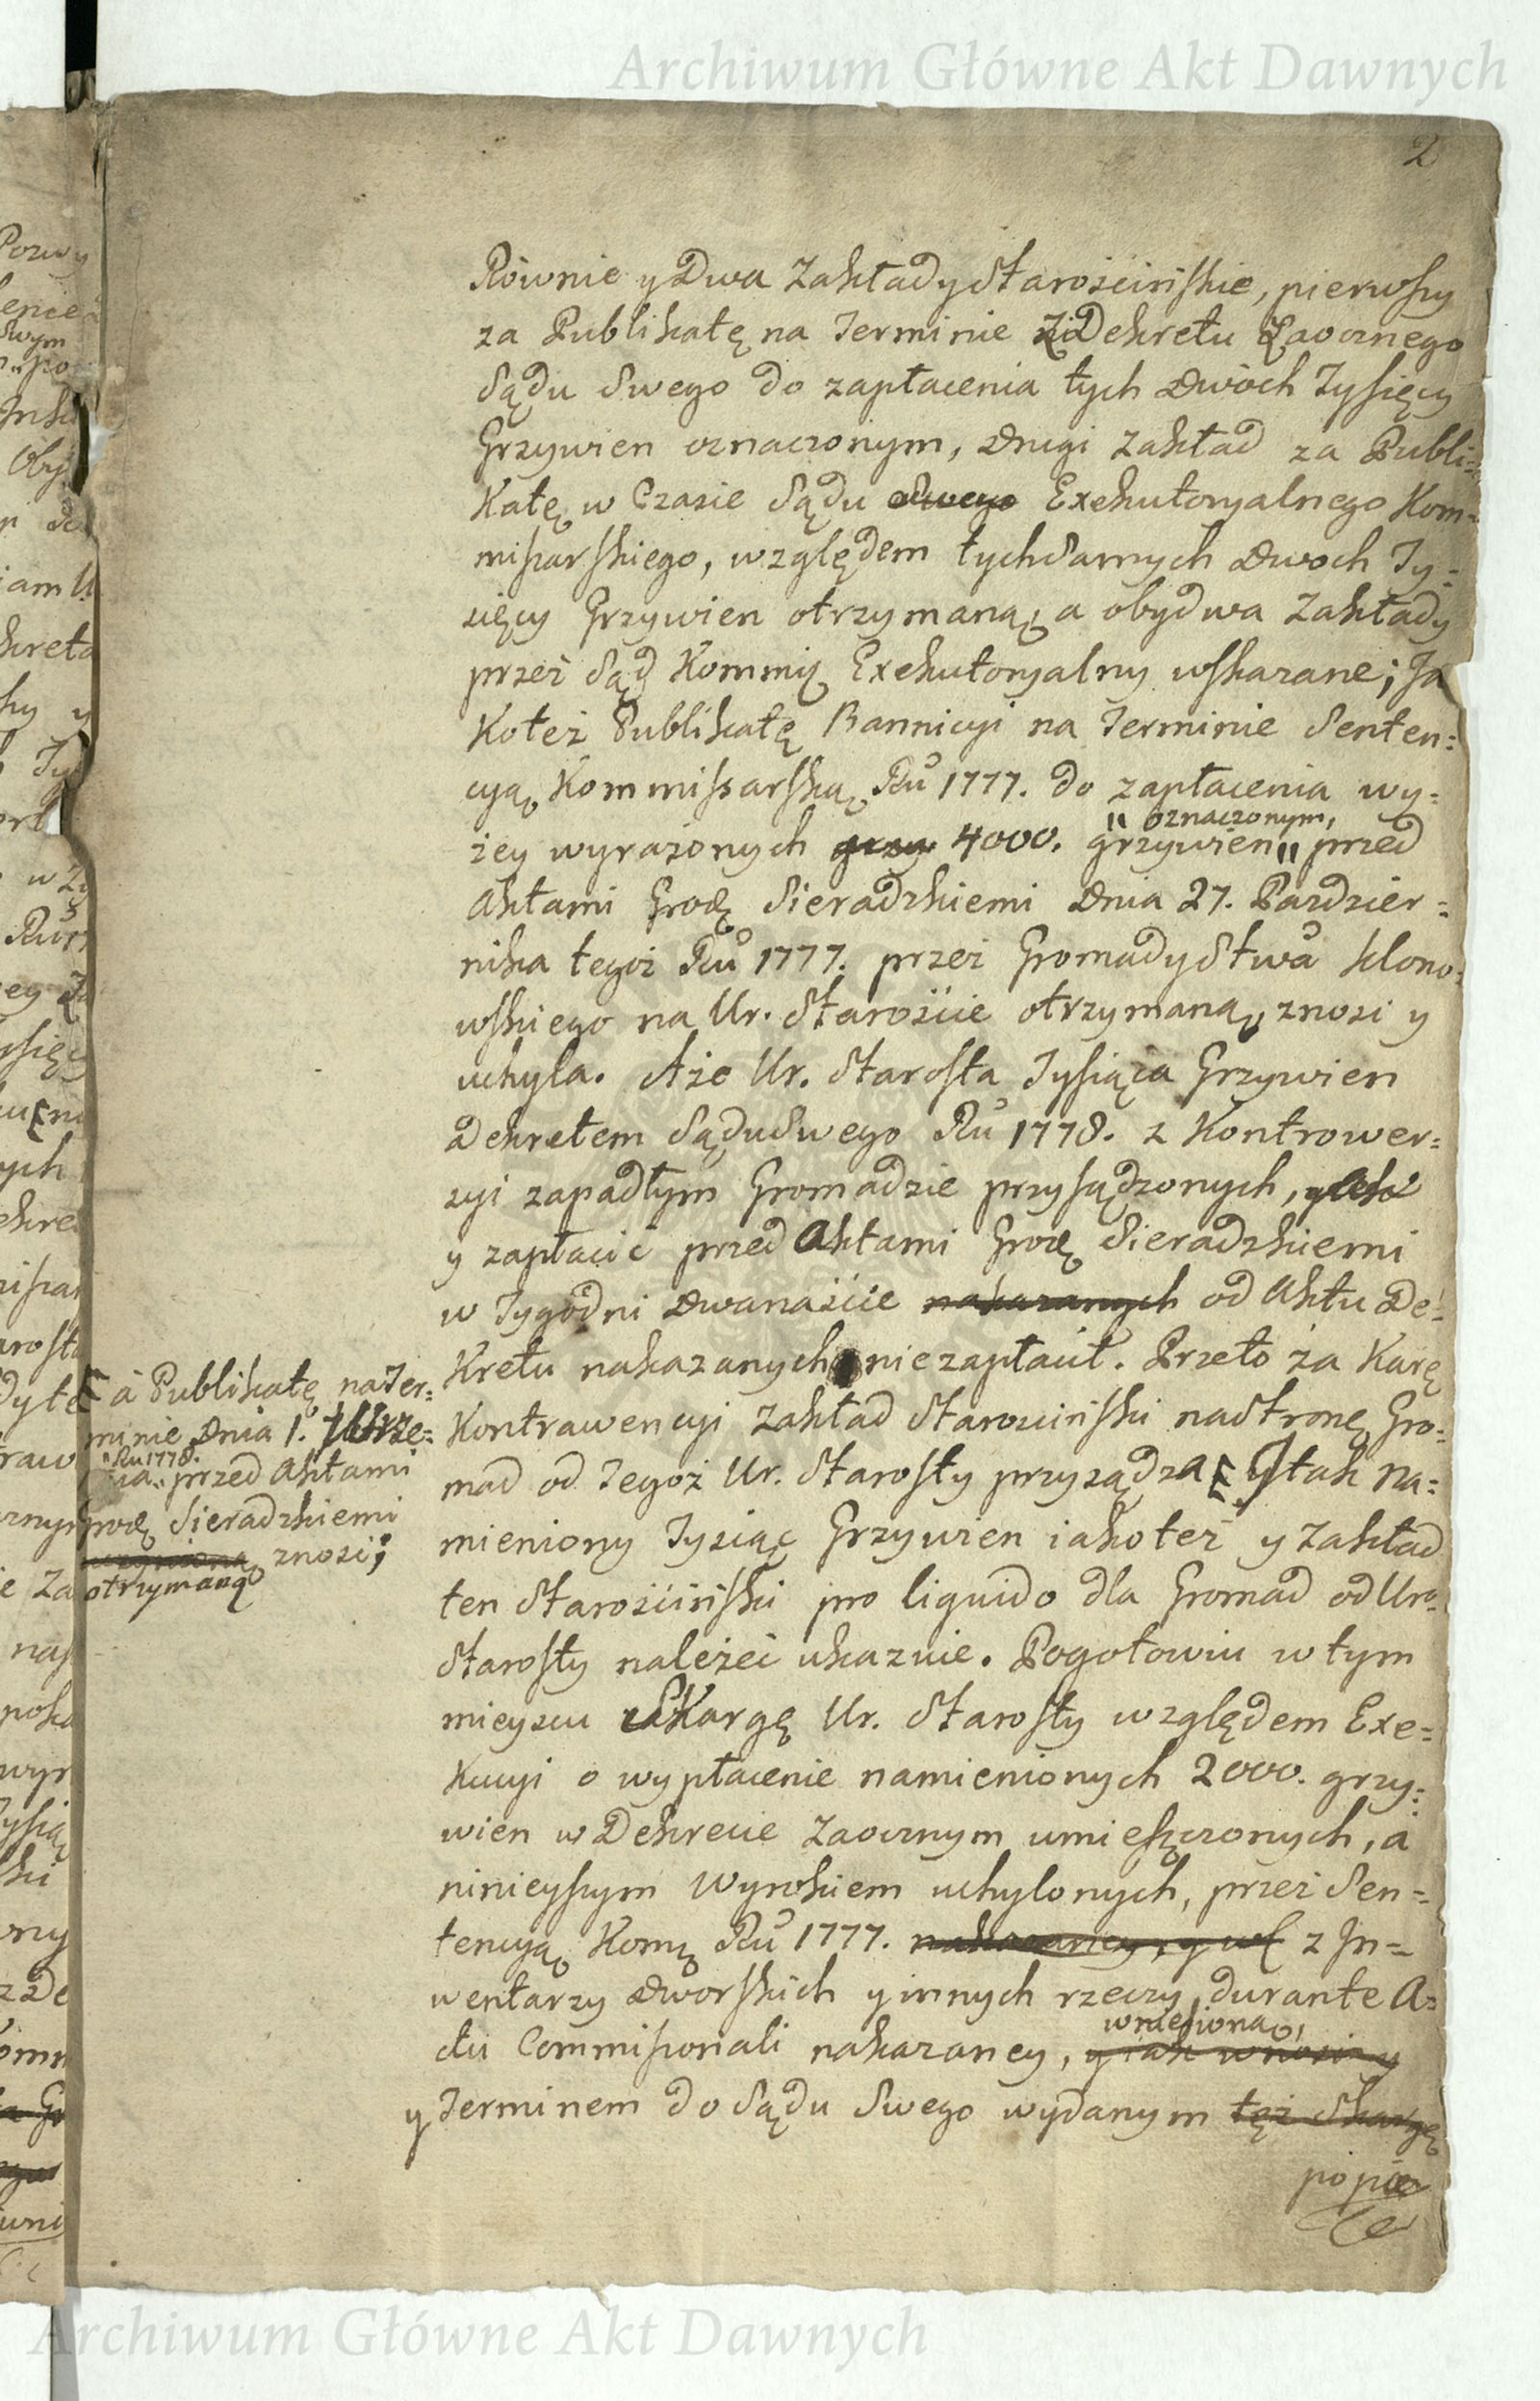 Archiwum Główne Akt Dawnych
2
Równie y Dwa Zakłady Starościńskie, pierwszy
za Publikatę na Terminie Dekretu Zaocznego
Sądu Swego do zapłacenia tych Dwoch Tysięcy
Grzywien oznaczonym, Drugi Zakład za Publi=
Katę w Czasie Sądu Swego Exekutoryalnego Kom=
missarskiego, względem tych Samych Dwoch Ty=
sięcy Grzywien otrzymaną, a obydwa Zakłady
przez Sąd Kommiss Exekutoryalny wskazane; Ja
Koteż Publikatę Bannicyi na Terminie Senten=
cyą Kommissarską Ru 1777. do zapłacenia wy=
żey wyrażonych grzy 4000. grzywien " oznaczonym, " przed
Aktami Grodz Sieradzkiemi Dnia 27. Pazdzier=
nika tegoż Ru 1777. przez Gromady Stwa Klono=
wskiego na Ur. Staroście otrzymaną, znosi y
uchyla. A że Ur. Starosta Tysiąca Grzywien
Dekretem Sądu Swego Ru 1778. z Kontrower=
syi zapadłym Gromadzie przysądzonych,
y zapłacić przed Aktami Grodz Sieradzkiemi
w Tygodni Dwanaście nakazanych od Aktu De=
Kretu nakazanych niezapłacił. Przeto za Karę
Kontrawencyi Zakład Starościński na Stronę Gro=
mad od Tegoż Ur. Starosty przysądza y tak na=
mieniony Tysiąc Grzywien iakoteż y Zakład
ten Starościński pro liquido dla Gromad od Uro.
Starosty należeć ukazuie. Pogotowiu w tym
mieyscu Skargę Ur. Starosty względem Exe=
Kucyi o wypłacenie namienionych 2000. grzy=
wien w Dekrecie Zaocznym umieszczonych, a
ninieyszym Wyrokiem uchylonych, przez Sen=
tencyą Komę Ru 1777. nakazaney, y z In=
wentarzy Dworskich y innych rzeczy durante A=
ctu Commissoriali nakazaney, y tak wnosi y wniesioną,
y Terminem do Sądu Swego wydanym też Skargę
popie
à Publikatę na Ter=
minie Dnia 1.
Ru 1778.
przed Aktami
Grodz Sieradzkiemi
znosi;
otrzymaną
Archiwum Główne Akt Dawnych